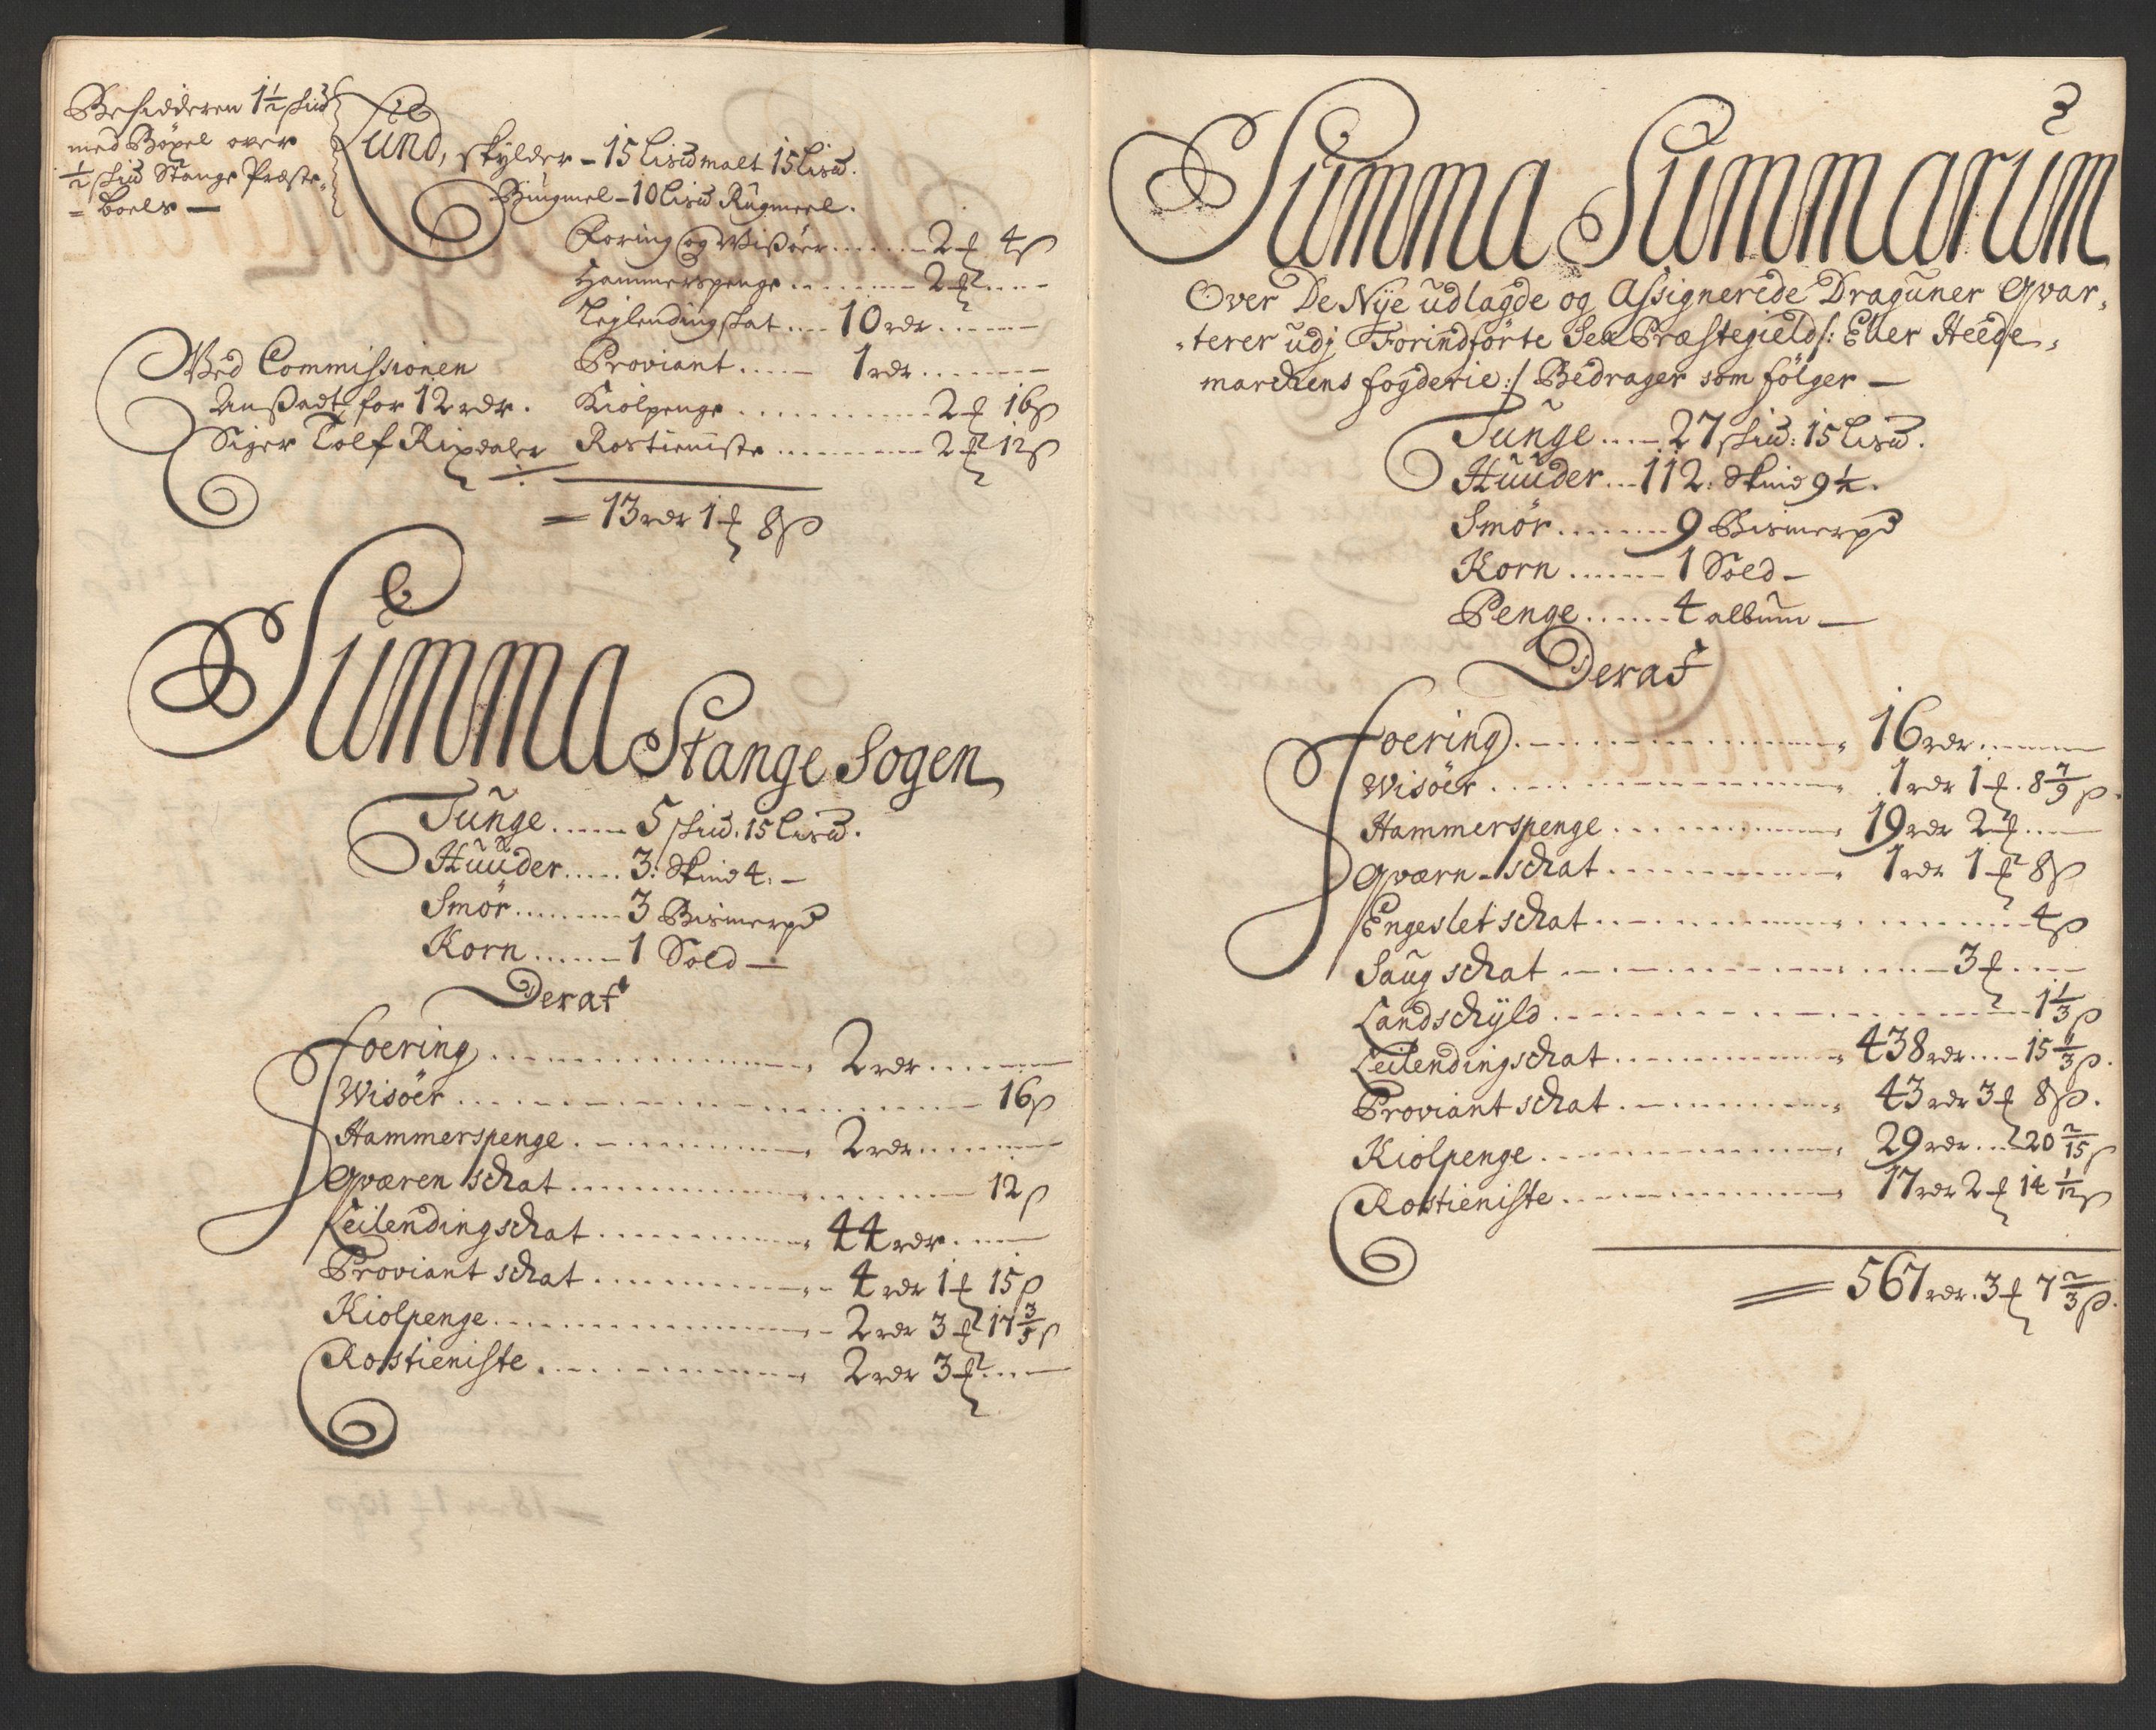 Besidderen 1½ skiud
med Böxel over
½ skiud Stange Præste-
= boels —
Lund, skylder - 15 Lisud malt 15 Lisud.
Biugmel - 10 Lisud Rugmeel.
Foring og Wisöer ....... 2 ƒ 4 β
Hammerspenge ....... 2 ƒ ....
Leylendingskat .... 10 rdr ......
Proviant ..... 1 rdr .......
Ved Commissionen
Anslaet for 12 rdr.
Siger Tolf Rixdaler
Kiolpenge ............ 2 ƒ 16 β
Rostieniste ......... 2 ƒ 12 β
= 13 rdr 1 ƒ 8 β
Summa Stange Sogen
Tunge ..... 5 skiud. 15 Lisud.
Huuder ..... 3: Skind 4: —
Smör ........ 3 Bismerpd
Korn ...... 1 Sold —
Deraf
Foering ............ 2 rdr ......
Wisöer ............ 16 β
Hammerspenge ............ 2 rdr ......
Qværen schat ............ 12 β
Leilendingschat ............ 44 rdr ......
Proviant schat ............ 4 rdr 1 ƒ 15 β
Kiolpenge ............ 2 rdr 3 ƒ 17 3/5 β
Rostieniste ............ 2 rdr 3 ƒ ....
3
Summa Summarum
Over De Nye udlagde og Assignerede Draguner Qvar-
-terer udj Forindförte Sex Præstegield /: Eller Heede-
marckens fogderie :/ Bedrager som fölger —
Tunge .... 27 skiud: 15 Lisud.
Huuder ... 112: Skind 9½.
Smör ....... 9 Bismerpd
Korn ...... 1 Sold —
Penge ...... 4 album —
Deraf
Foering ............ 16 rdr ......
Wisöer ............ 1 rdr 1 ƒ. 8 7/9 β.
Hammerspenge ............ 19 rdr 2 ƒ ....
Qværn-schat ............ 1 rdr 1 ƒ 8 β
Engeslet schat ............ 4 β
Saug schat ............ 3 ƒ ....
Landschyld ............ 1 1/3 β
Leilendingschat ............ 438 rdr .... 15 1/3 β.
Proviant schat ............ 43 rdr 3 ƒ 8 β.
Kiolpenge ............ 29 rdr .... 20 2/15 β
Rostieniste ............ 17 rdr 2 ƒ 14 1/12 β
= 567 rdr. 3 ƒ 7 2/3 β.